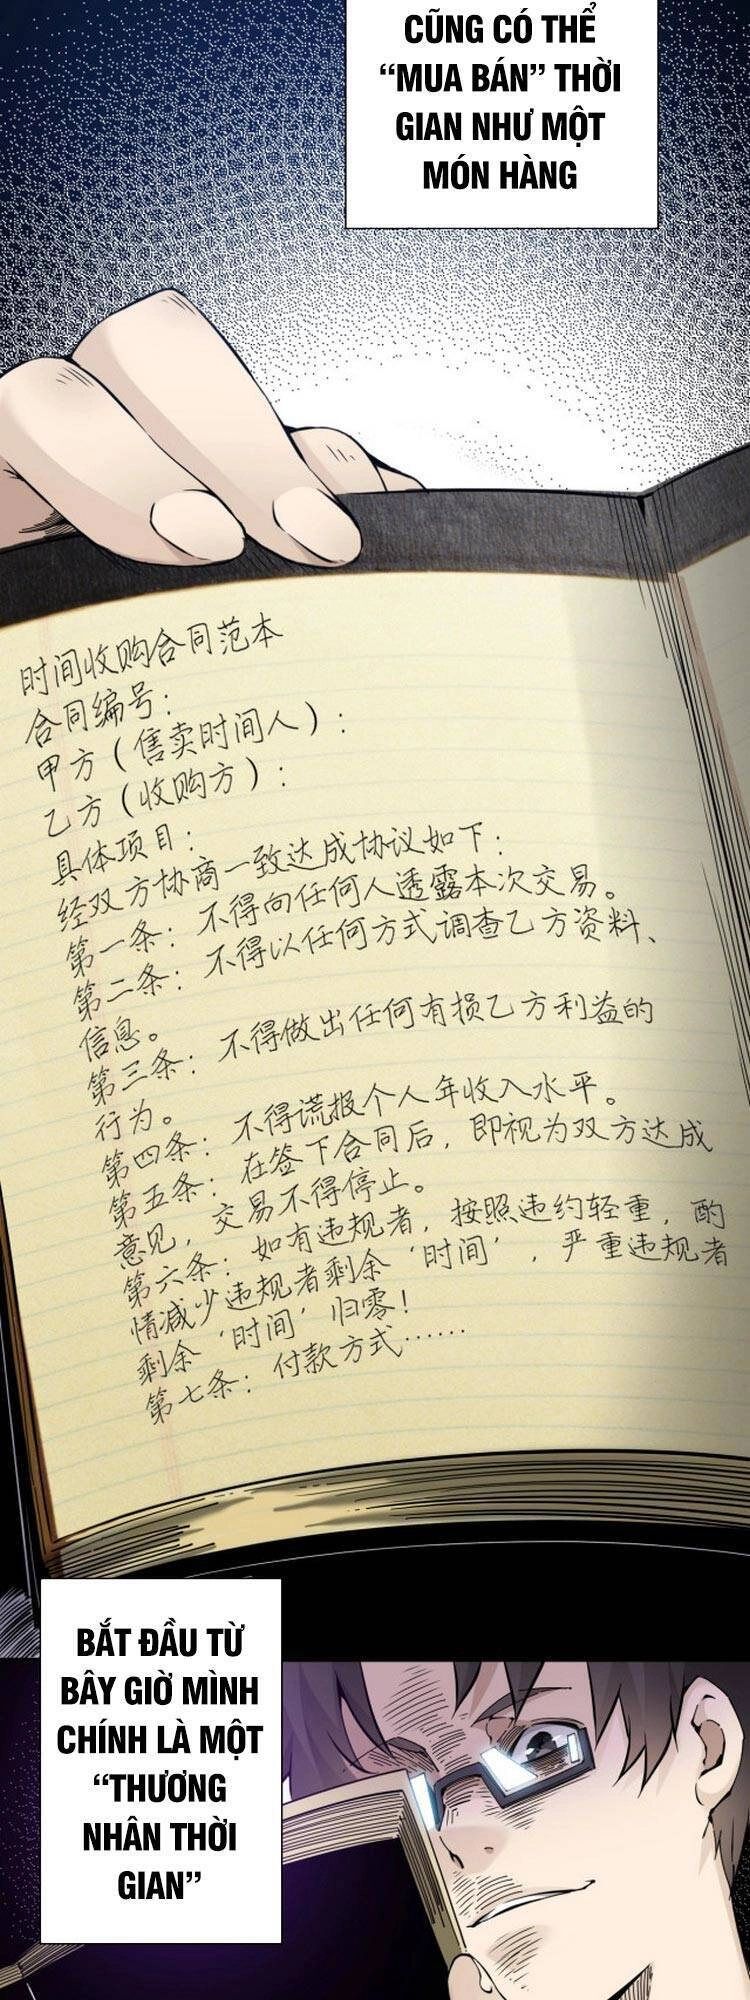 CŨNG CÓ THỂ
“MUA BÁN” THỜI
GIAN NHƯ MỘT
MÓN HÀNG
时间收购合同范本
合同编号：
甲方（售卖时间人）：
乙方（收购方）：
具体项目：
经双方协商一致达成协议如下：
第一条：不得向任何人透露本次交易。
第二条：不得以任何方式调查乙方资料、
信息。
第三条：不得做出任何有损乙方利益的
行为。
第四条：不得谎报个人年收入水平。
第五条：在签下合同后，即视为双方达成
意见，交易不得停止。
第六条：如有违规者，按照违约轻重，酌
情减少违规者剩余‘时间’，严重违规者
剩余‘时间’归零！
第七条：付款方式……
BẮT ĐẦU TỪ
BÂY GIỜ MÌNH
CHÍNH LÀ MỘT
“THƯƠNG
NHÂN THỜI
GIAN”